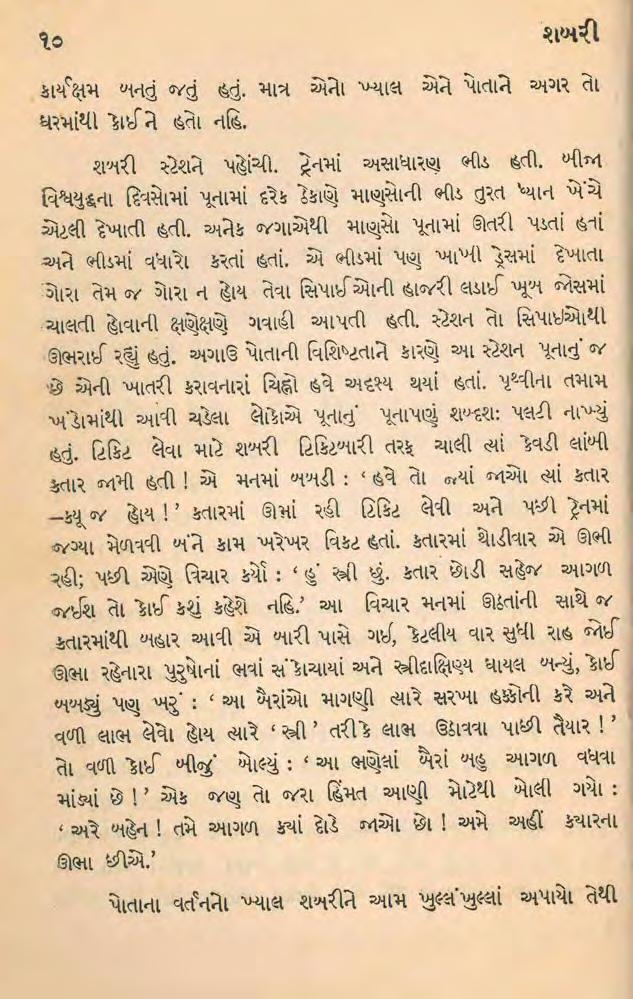 ૧૦ શબરી
કાર્યક્ષમ બનતું જતું હતું. માત્ર એનો ખ્યાલ એને પોતાને અગર તો
ઘરમાંથી કોઈને હતો નહિ.
શબરી સ્ટેશને પહોંચી. ટ્રેનમાં અસાધારણ ભીડ હતી. બીજા
વિશ્વયુદ્ધના દિવસોમાં પૂનામાં દરેક ઠેકાણે માણસોની ભીડ તુરત ધ્યાન ખેંચે
એટલી દેખાતી હતી. અનેક જગાએથી માણસો પૂનામાં ઊતરી પડતાં હતાં
અને ભીડમાં વધારો કરતાં હતાં. એ ભીડમાં પણ ખાખી ડ્રેસમાં દેખાતા
ગોરા તેમ જ ગોરા ન હોય તેવા સિપાઈઓની હાજરી લડાઈ ખૂબ જોસમાં
ચાલતી હોવાની ક્ષણેક્ષણે ગવાહી આપતી હતી. સ્ટેશન તો સિપાઈઓથી
ઊભરાઈ રહ્યું હતું. અગાઉ પોતાની વિશિષ્ટતાને કારણે આ સ્ટેશન પૂનાનું જ
છે એની ખાતરી કરાવનારાં ચિહ્નો હવે અદૃશ્ય થયાં હતાં. પૃથ્વીના તમામ
ખંડોમાંથી આવી ચડેલા લોકોએ પૂનાનું પૂનાપણું શબ્દશઃ પલટી નાખ્યું
હતું. ટિકિટ લેવા માટે શબરી ટિકિટબારી તરફ ચાલી ત્યાં કેવડી લાંબી
કતાર જામી હતી ! એ મનમાં બબડી : ‘ હવે તો જ્યાં જાઓ ત્યાં કતાર
—ક્યૂ જ હોય ! ’ કતારમાં ઊભાં રહી ટિકિટ લેવી અને પછી ટ્રેનમાં
જગ્યા મેળવવી બંને કામ ખરેખર વિકટ હતાં. કતારમાં થોડીવાર એ ઊભી
રહી; પછી એણે વિચાર કર્યો : ‘ હું સ્ત્રી છું. કતાર છોડી સહેજ આગળ
જઈશ તો કોઈ કશું કહેશે નહિ.’ આ વિચાર મનમાં ઊઠતાંની સાથે જ
કતારમાંથી બહાર આવી એ બારી પાસે ગઈ, કેટલીય વાર સુધી રાહ જોઈ
ઊભા રહેનારા પુરુષોનાં ભવાં સંકોચાયાં અને સ્ત્રીદાક્ષિણ્ય ઘાયલ બન્યું, કોઈ
બબડ્યું પણ ખરું : ‘ આ બૈરાંઓ માગણી ત્યારે સરખા હક્કોની કરે અને
વળી લાભ લેવો હોય ત્યારે ‘ સ્ત્રી ’ તરીકે લાભ ઉઠાવવા પાછી તૈયાર ! ’
તો વળી કોઈ બીજું બોલ્યું : ‘ આ ભણેલાં બૈરાં બહુ આગળ વધવા
માંડ્યાં છે ! ’ એક જણ તો જરા હિંમત આણી મોટેથી બોલી ગયો :
‘ અરે બહેન ! તમે આગળ ક્યાં દોડે જાઓ છો ! અમે અહીં ક્યારના
ઊભા છીએ.’
પોતાના વર્તનનો ખ્યાલ શબરીને આમ ખુલ્લંખુલ્લાં અપાયો તેથી